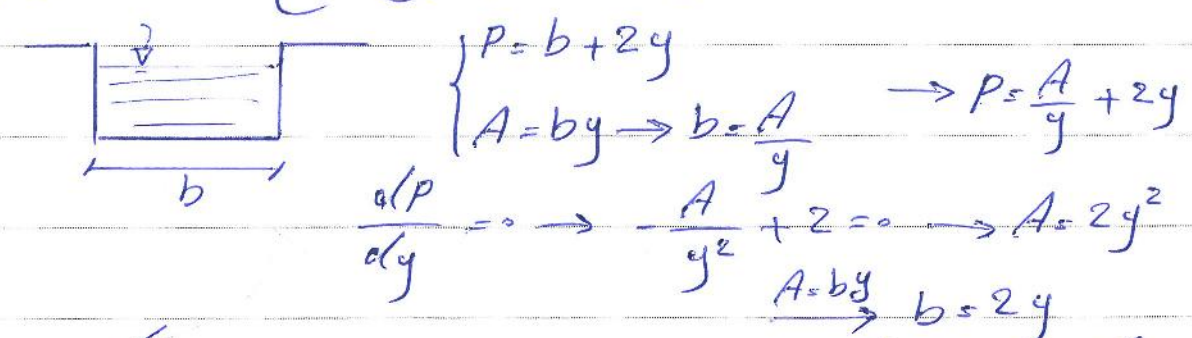 P = b + 2y
A = by → b = A/y → P = A/y + 2y
b
dP/dy = 0 → -A/y² + 2 = 0 → A = 2y²
A = by → b = 2y